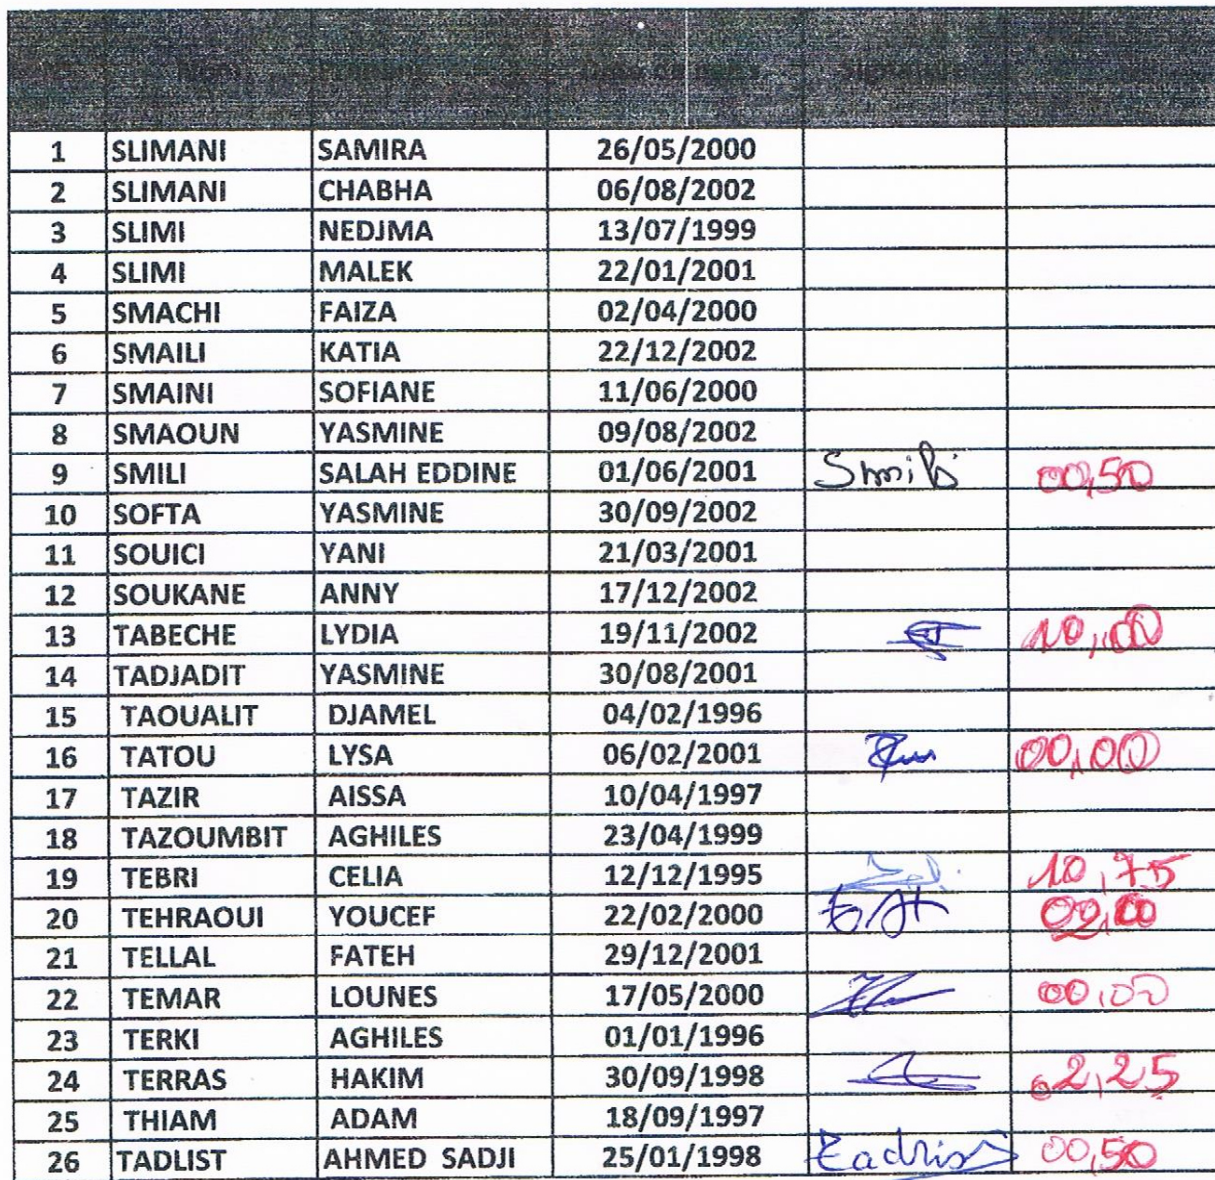 1 SLIMANI SAMIRA 26/05/2000
2 SLIMANI CHABHA 06/08/2002
3 SLIMI NEDJMA 13/07/1999
4 SLIMI MALEK 22/01/2001
5 SMACHI FAIZA 02/04/2000
6 SMAILI KATIA 22/12/2002
7 SMAINI SOFIANE 11/06/2000
8 SMAOUN YASMINE 09/08/2002
9 SMILI SALAH EDDINE 01/06/2001 Smili 00,50
10 SOFTA YASMINE 30/09/2002
11 SOUICI YANI 21/03/2001
12 SOUKANE ANNY 17/12/2002
13 TABECHE LYDIA 19/11/2002 10,00
14 TADJADIT YASMINE 30/08/2001
15 TAOUALIT DJAMEL 04/02/1996
16 TATOU LYSA 06/02/2001 00,00
17 TAZIR AISSA 10/04/1997
18 TAZOUMBIT AGHILES 23/04/1999
19 TEBRI CELIA 12/12/1995 10,75
20 TEHRAOUI YOUCEF 22/02/2000 02,00
21 TELLAL FATEH 29/12/2001
22 TEMAR LOUNES 17/05/2000 00,00
23 TERKI AGHILES 01/01/1996
24 TERRAS HAKIM 30/09/1998 02,25
25 THIAM ADAM 18/09/1997
26 TADLIST AHMED SADJI 25/01/1998 00,50